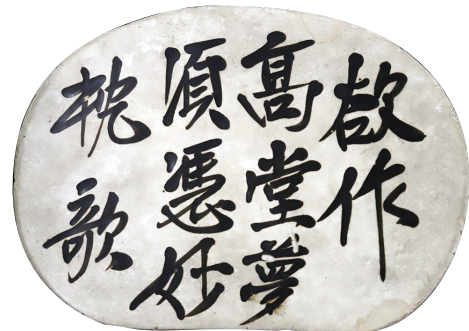 欲作
高堂夢
須憑妙
枕歌